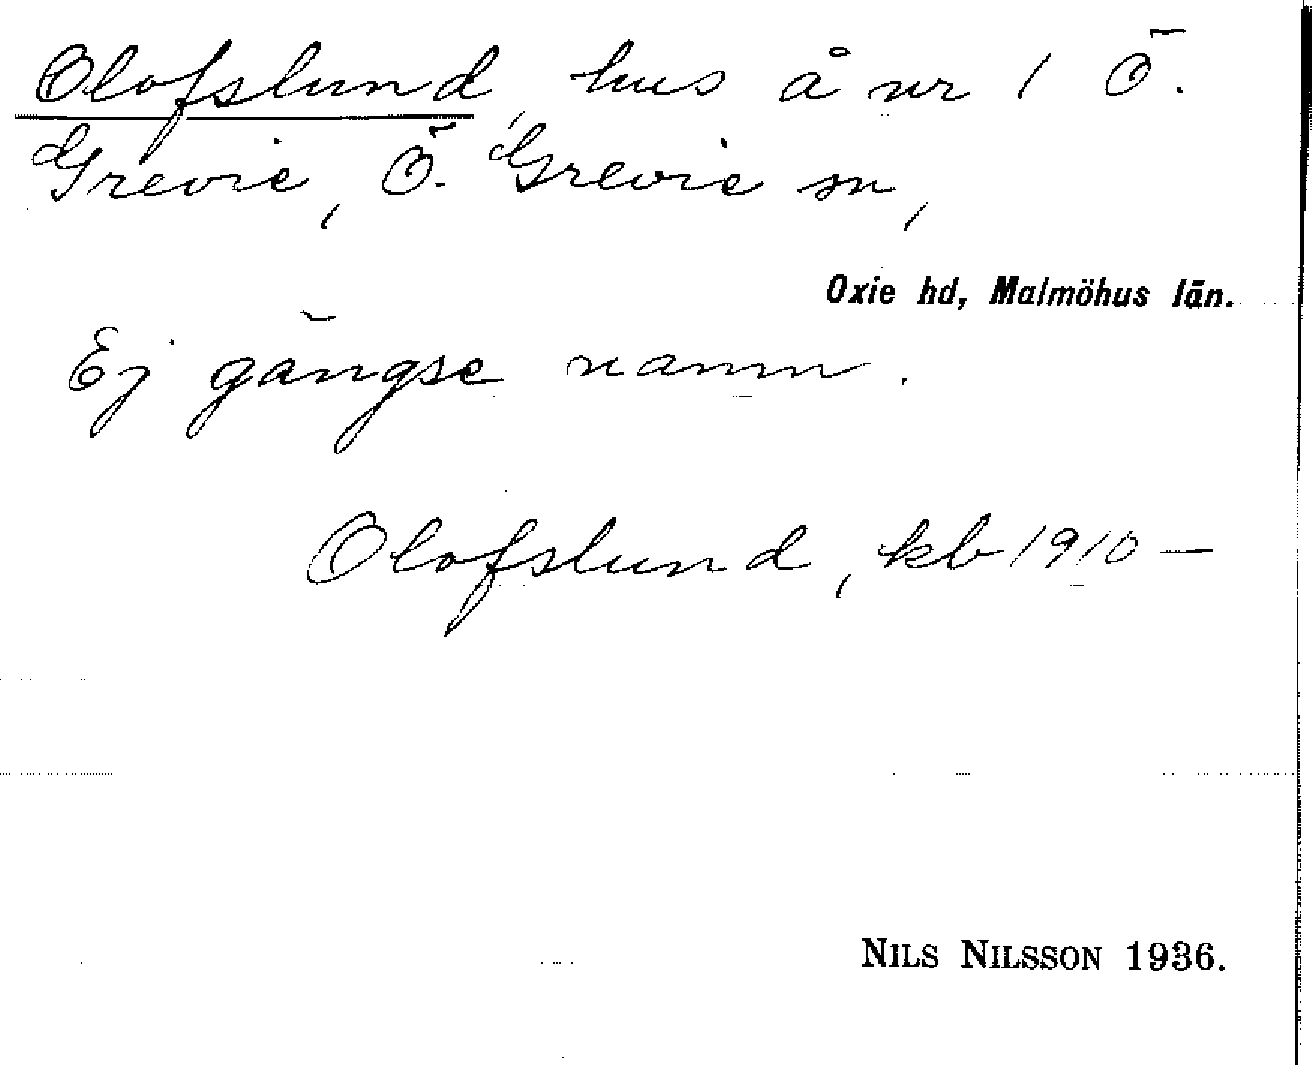 Olofslund, hus å nr 1 Ö.
Grevie, Ö. Grevie sn,
Oxie hd, Malmöhus län.
Ej gängse namn.
Olofslund, kb 1910—
NILS NILSSON 1936.